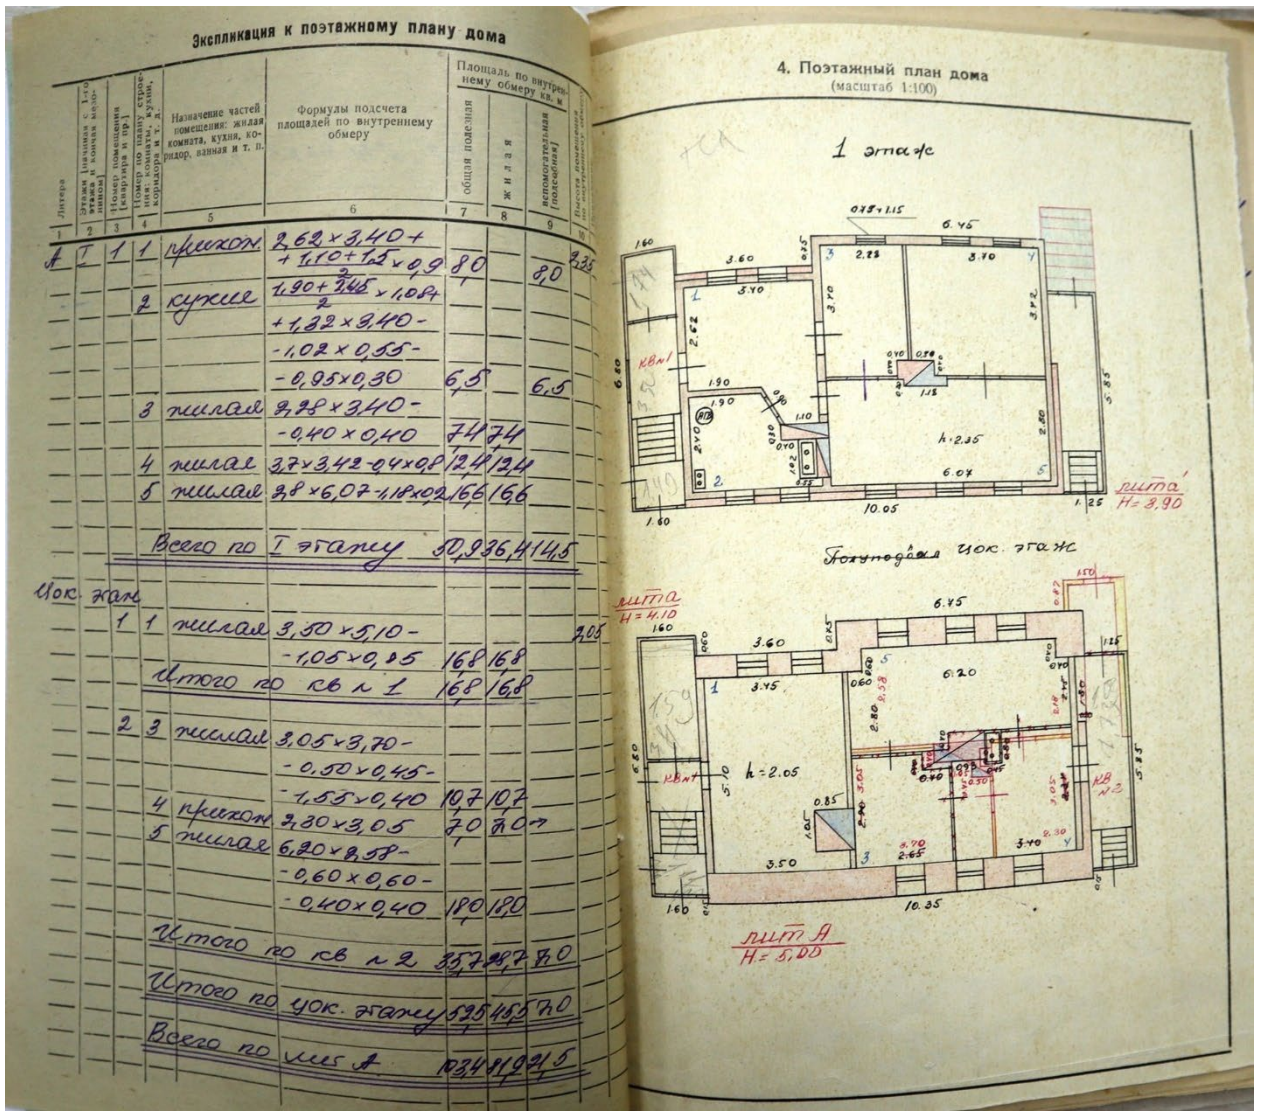 Экспликация к поэтажному плану дома
Литера
Этажи [начиная с 1-го этажа и кончая мезонином]
Номер помещения [квартира и пр.]
Номер по плану строения: комнаты, кухни, коридора и т. д.
Назначение частей помещения: жилая комната, кухня, коридор, ванная и т. п.
Формулы подсчета площадей по внутреннему обмеру
Площаль по внутреннему обмеру кв. м
общая полезная
жилая
вспомогательная [подсобная]
1 2 3 4 5 6 7 8 9 10
А I 1 1 прихож. 2,62×3,40+ 2,35
+ 1,10+1,2 / 2 ×0,9 8,0 8,0
2 кухне 1,90+2,45 / 2 ×1,08+
+1,32×3,40-
-1,02×0,55-
-0,95×0,30 6,5 6,5
3 жилая 2,28×3,40-
-0,40×0,40 7,4 7,4
4 жилая 3,7×3,42-0,4×0,8 12,4 12,4
5 жилая 2,8×6,07-1,18×0,2 16,6 16,6
Всего по I этажу 50,9 36,4 14,5
Цок. этаж
1 1 жилая 3,50×5,10- 2,05
-1,05×0,85 16,8 16,8
Итого по кв №1 16,8 16,8
2 3 жилая 3,05×3,70-
-0,50×0,45-
-1,55×0,40 10,7 10,7
4 прихож 2,30×3,05 7,0 7,0→
5 жилая 6,20×2,58-
-0,60×0,60-
-0,40×0,40 18,0 18,0
Итого по кв №2 35,7 28,7 7,0
Итого по цок. этажу 52,5 45,5 7,0
Всего по лит А 103,4 81,9 21,5
4. Поэтажный план дома
(масштаб 1:100)
1 этаж
0.75×1.15
6.45
1.60
3.60
0.75
3
2.28
3.70
4
1
3.40
2.62
3.40
3.42
6.80
КВ №1
5.85
1.90
1.90
1.10
1.18
2.40
2.80
h=2.35
1.02
2
0.55
6.07
5
1.60
10.05
1.25
лит а'
H=3,90
Полуподвал Цок. этаж
лит а
H=4.10
1.50
0.87
6.45
1.60
0.60
3.60
0.75
1.25
1
3.45
0.60
0.60
5
2.58
6.20
0.40
2.80
6.80
КВ №1
5.10
h=2.05
0.85
1.05
3.05
3.05
КВ №2
5.85
3.50
3
3.70
2.65
2.30
3.40
4
1.60
10.35
лит А
H=5,00